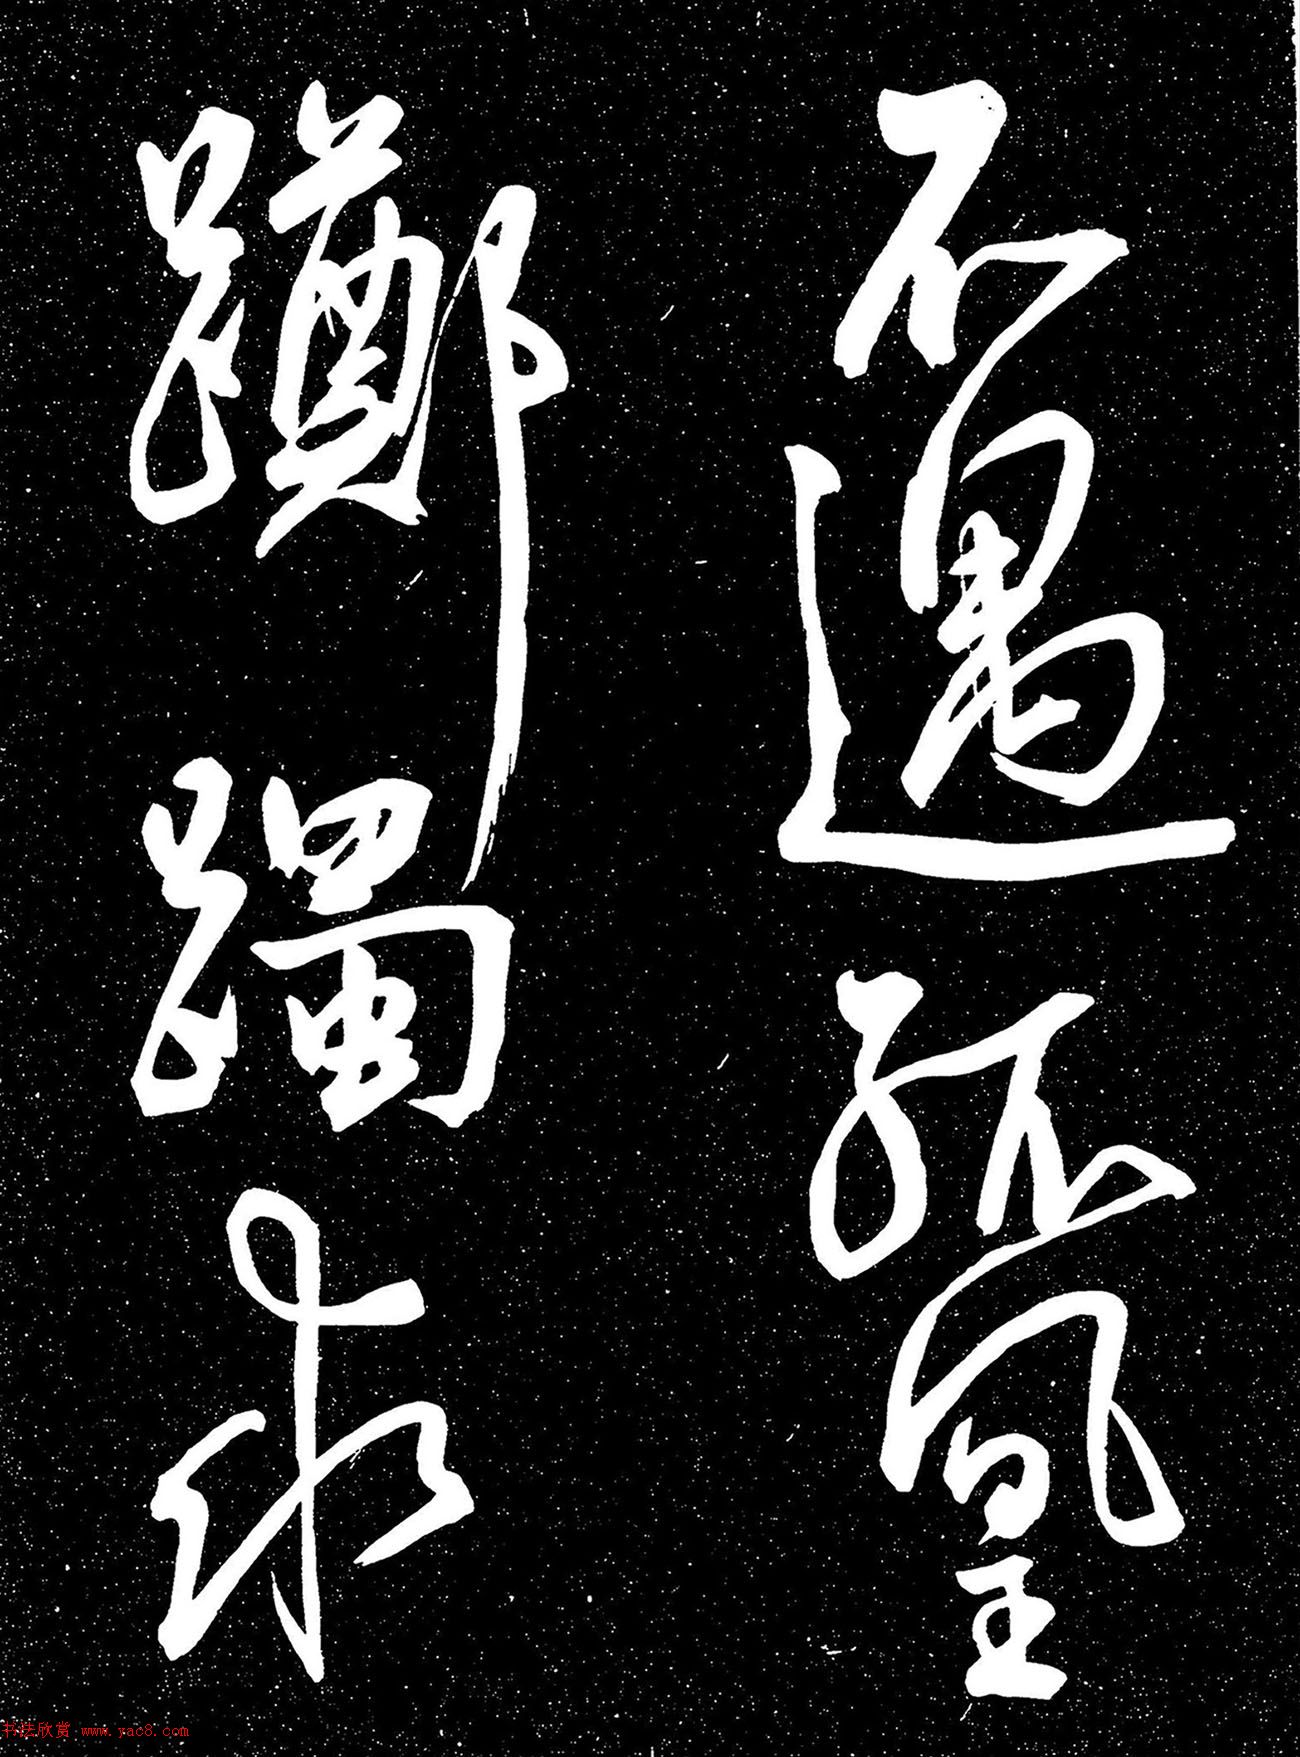 不遇孤凰
躑躅求
书法欣赏 www.yac8.com